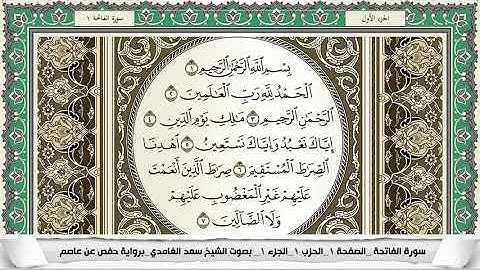 الجزء الأول
سورة الفاتحة ١
بِسْمِ ٱللَّهِ ٱلرَّحْمَٰنِ ٱلرَّحِيمِ ١
ٱلْحَمْدُ لِلَّهِ رَبِّ ٱلْعَٰلَمِينَ ٢
ٱلرَّحْمَٰنِ ٱلرَّحِيمِ ٣ مَٰلِكِ يَوْمِ ٱلدِّينِ ٤
إِيَّاكَ نَعْبُدُ وَإِيَّاكَ نَسْتَعِينُ ٥ ٱهْدِنَا
ٱلصِّرَٰطَ ٱلْمُسْتَقِيمَ ٦ صِرَٰطَ ٱلَّذِينَ أَنْعَمْتَ
عَلَيْهِمْ غَيْرِ ٱلْمَغْضُوبِ عَلَيْهِمْ
وَلَا ٱلضَّآلِّينَ ٧
سورة الفاتحة _ الصفحة ١ _ الحزب ١ _ الجزء ١ _ بصوت الشيخ سعد الغامدي _ برواية حفص عن عاصم